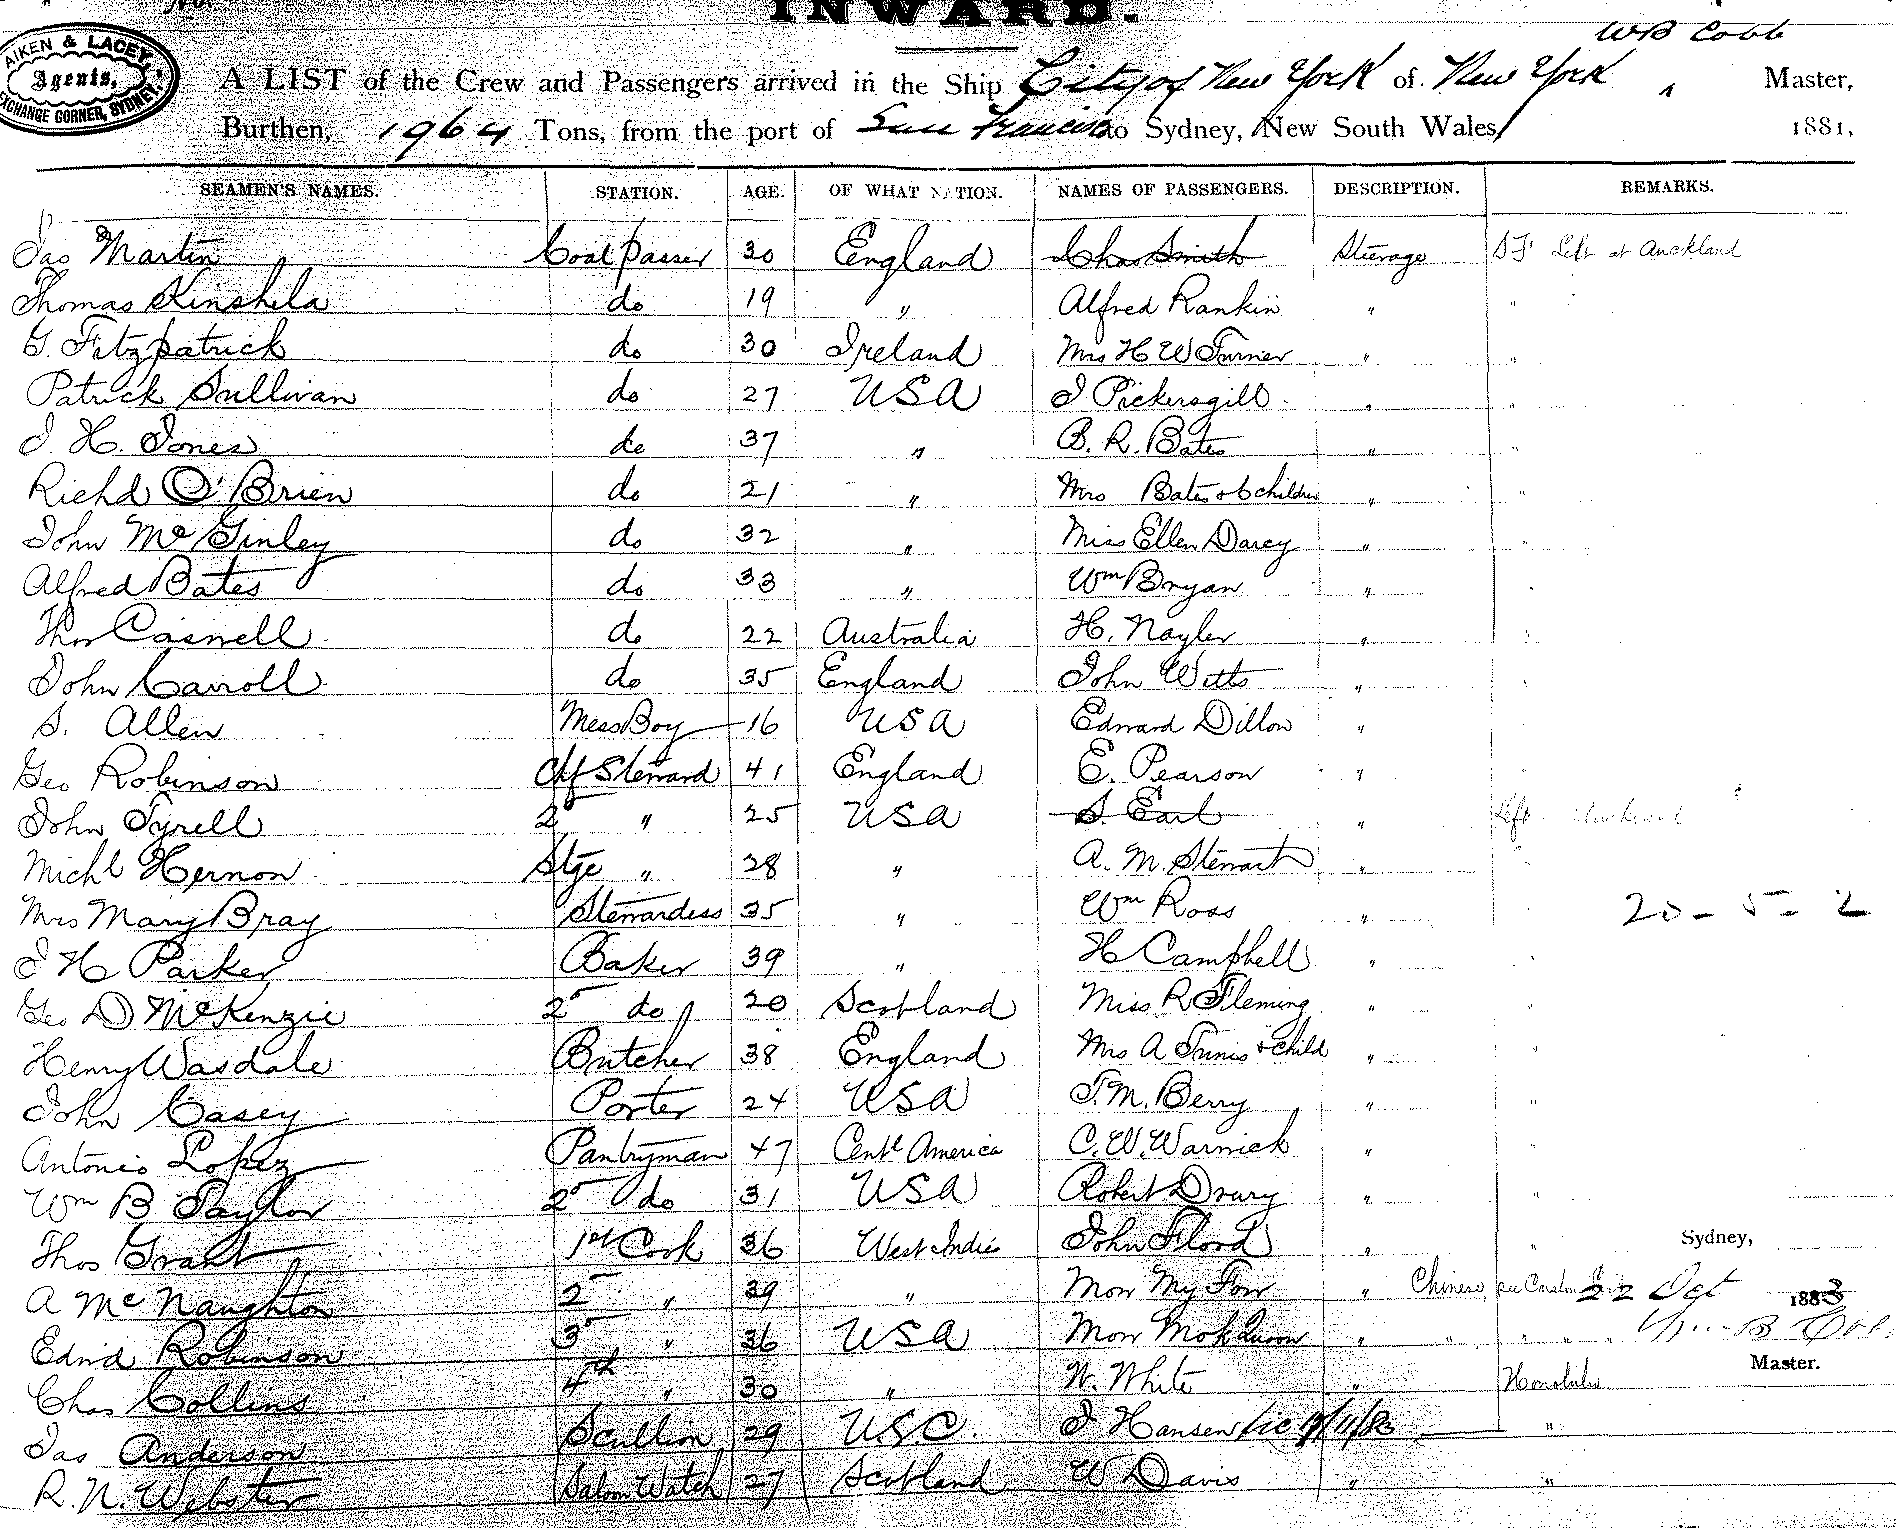 INWARD.
WB Cobb
AIKEN & LACEY,
Agents,
EXCHANGE CORNER, SYDNEY.
A LIST of the Crew and Passengers arrived in the Ship City of New York of New York , Master,
Burthen, 1964 Tons, from the port of San Francisco to Sydney, New South Wales, 1881,
SEAMEN'S NAMES. STATION. AGE. OF WHAT NATION. NAMES OF PASSENGERS. DESCRIPTION. REMARKS.
Jas Martin Coal passer 30 England Chas Smith Steerage SF Left at Auckland
Thomas Kinshela do 19 " Alfred Rankin " "
G. Fitzpatrick do 30 Ireland Mrs H W Turner " "
Patrick Sullivan do 27 USA J Pickersgill " "
J. H. Jones do 37 " B. R. Bates " "
Richd O'Brien do 21 " Mrs Bates & 6 children " "
John Mc Ginley do 32 " Miss Ellen Darcy "
Alfred Bates do 33 " Wm Bryan "
Thos Casnell do 22 Australia H. Nayler "
John Carroll do 35 England John Witts "
S. Allen Mess Boy 16 USA Edward Dillon "
Geo Robinson Chf Steward 41 England E. Pearson "
John Tyrell 2 " 25 USA S. Earl " Left
Michl Hernon Stge " 28 " A. M. Stewart "
Mrs Mary Bray Stewardess 35 " Wm Ross " 20 - 5 - 2
J H Parker Baker 39 " H Campbell "
Geo D McKenzie 2 do 20 Scotland Miss R Fleming "
Henry Wasdale Butcher 38 England Mrs A Tunis & Child "
John Casey Porter 24 USA J. M. Berry " "
Antonio Lopez Pantryman 47 Centl America C. W. Warnick " "
Wm B Taylor 2 do 31 USA Robert Drury " "
Thos Grant 1st Cook 36 West Indies John Flood " " Sydney,
A Mc Naughton 2 " 39 " Mow My Fow " Chinese 22 Oct 1883
Edwd Robinson 3 " 36 USA Mow Mok " " " " "
Master.
Chas Collins 4th " 30 " W. White " Honolulu
Jas Anderson Scullion 29 U.S.C. J Hansen "
R. N. Webster Saloon Watch 27 Scotland W Davis " "